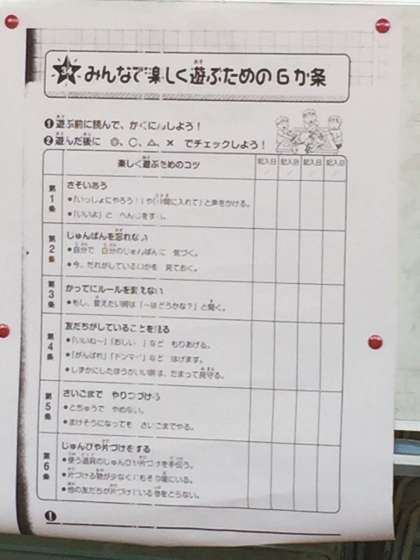 みんなで楽しく遊ぶための6か条
❶遊ぶ前に読んで、かくにんしよう！
❷遊んだ後に ◎、○、△、× でチェックしよう！
楽しく遊ぶためのコツ 記入日 記入日 記入日 記入日
第1条 さそいあう
●「いっしょにやろう！」や「仲間に入れて」と声をかける。
●「いいよ」と へんじをする。
第2条 じゅんばんを忘れない
●自分で 自分のじゅんばんに 気づく。
●今、だれがしているのかを 見ておく。
第3条 かってにルールを変えない
●もし、変えたい時は「〜はどうかな？」と聞く。
第4条 友だちがしていることを見る
●「いいね〜」「おしい〜」など もりあげる。
●「がんばれ」「ドンマイ」など はげます。
●しずかにしたほうがいい時は、だまって見守る。
第5条 さいごまで やりつづける
●とちゅうで やめない。
●まけそうになっても さいごまでやる。
第6条 じゅんびや片づけをする
●使う道具のじゅんびや片づけを手伝う。
●片づける物が少なくてもその場にいる。
●他の友だちが片づけている物をとらない。
❶